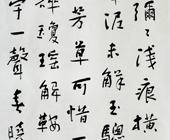 瀰〻淺痕橫
泥未解玉驄
芳草可惜一
碎瓊瑤解鞍
宇一聲春曉